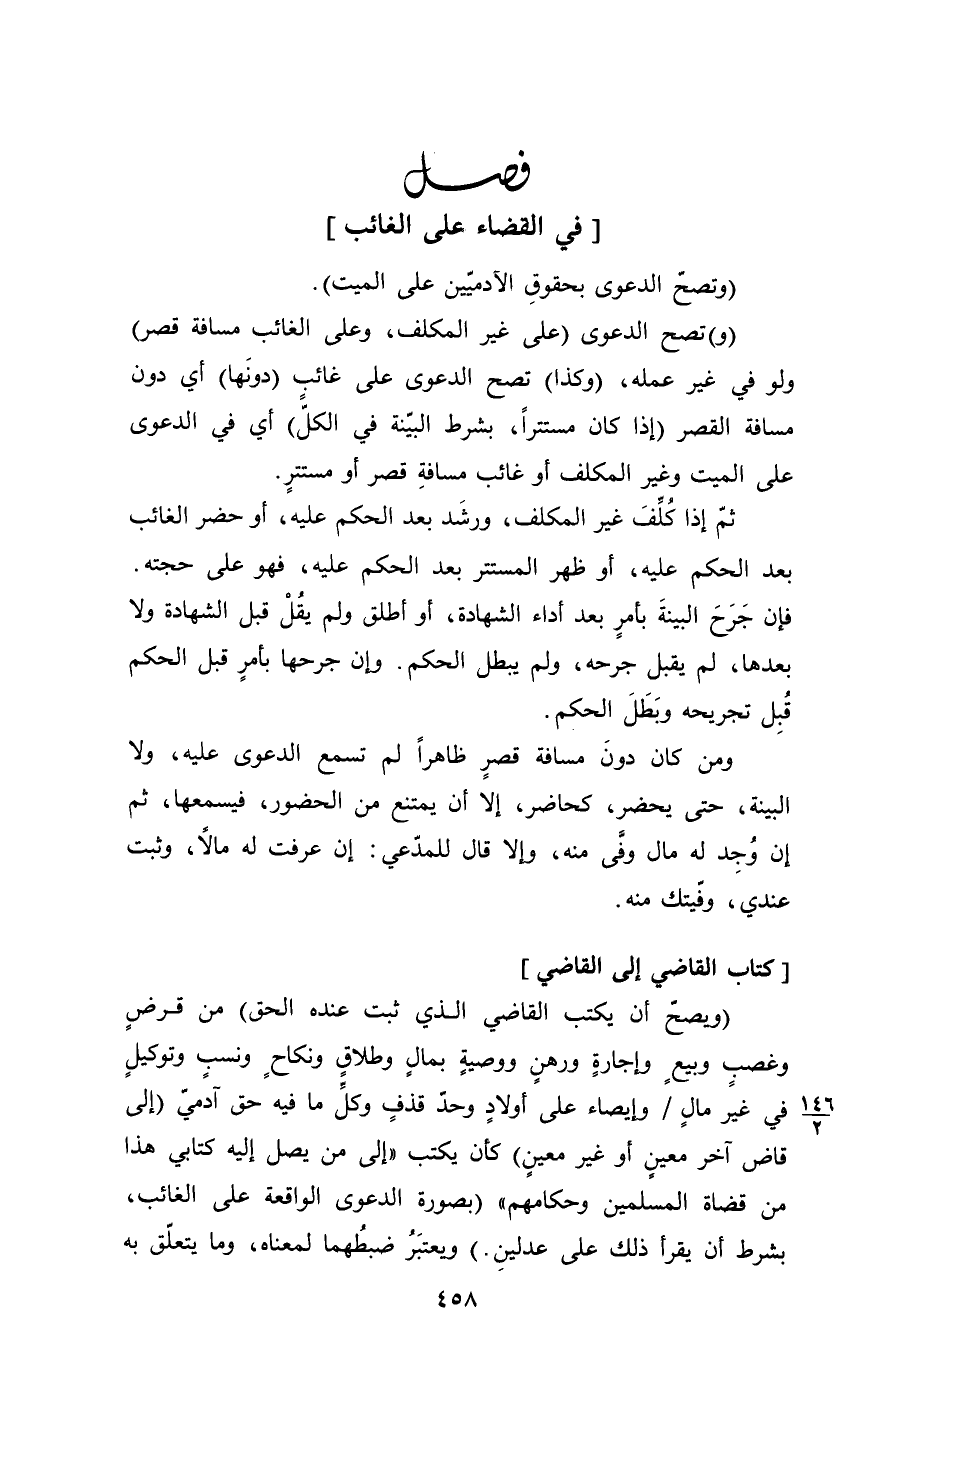 فصل
[ في القضاء على الغائب ]
(وتصحّ الدعوى بحقوقِ الآدميّين على الميت).
(و)تصح الدعوى (على غير المكلف، وعلى الغائب مسافة قصر)
ولو في غير عمله، (وكذا) تصح الدعوى على غائبٍ (دونَها) أي دون
مسافة القصر (إذا كان مستتراً، بشرط البيّنة في الكلّ) أي في الدعوى
على الميت وغير المكلف أو غائب مسافةِ قصر أو مستترٍ.
ثمّ إذا كُلِّفَ غير المكلف، ورشَد بعد الحكم عليه، أو حضر الغائب
بعد الحكم عليه، أو ظهر المستتر بعد الحكم عليه، فهو على حجته.
فإن جَرَحَ البينةَ بأمرٍ بعد أداء الشهادة، أو أطلق ولم يقُلْ قبل الشهادة ولا
بعدها، لم يقبل جرحه، ولم يبطل الحكم. وإن جرحها بأمرٍ قبل الحكم
قُبِل تجريحه وبَطَلَ الحكم.
ومن كان دونَ مسافة قصرٍ ظاهراً لم تسمع الدعوى عليه، ولا
البينة، حتى يحضر، كحاضر، إلا أن يمتنع من الحضور، فيسمعها، ثم
إن وُجِد له مال وفَّى منه، وإلا قال للمدّعي: إن عرفت له مالًا، وثبت
عندي، وفّيتك منه.
[ كتاب القاضي إلى القاضي ]
(ويصحّ أن يكتب القاضي الذي ثبت عنده الحق) من قرضٍ
وغصبٍ وبيعٍ وإجارةٍ ورهنٍ ووصيةٍ بمالٍ وطلاقٍ ونكاحٍ ونسبٍ وتوكيلٍ
في غير مالٍ / وإيصاء على أولادٍ وحدّ قذفٍ وكلِّ ما فيه حق آدميّ (إلى
١٤٦
٢
قاض آخر معينٍ أو غير معينٍ) كأن يكتب «إلى من يصل إليه كتابي هذا
من قضاة المسلمين وحكامهم» (بصورة الدعوى الواقعة على الغائب،
بشرط أن يقرأ ذلك على عدلينِ.) ويعتبَرُ ضبطُهما لمعناه، وما يتعلّق به
٤٥٨